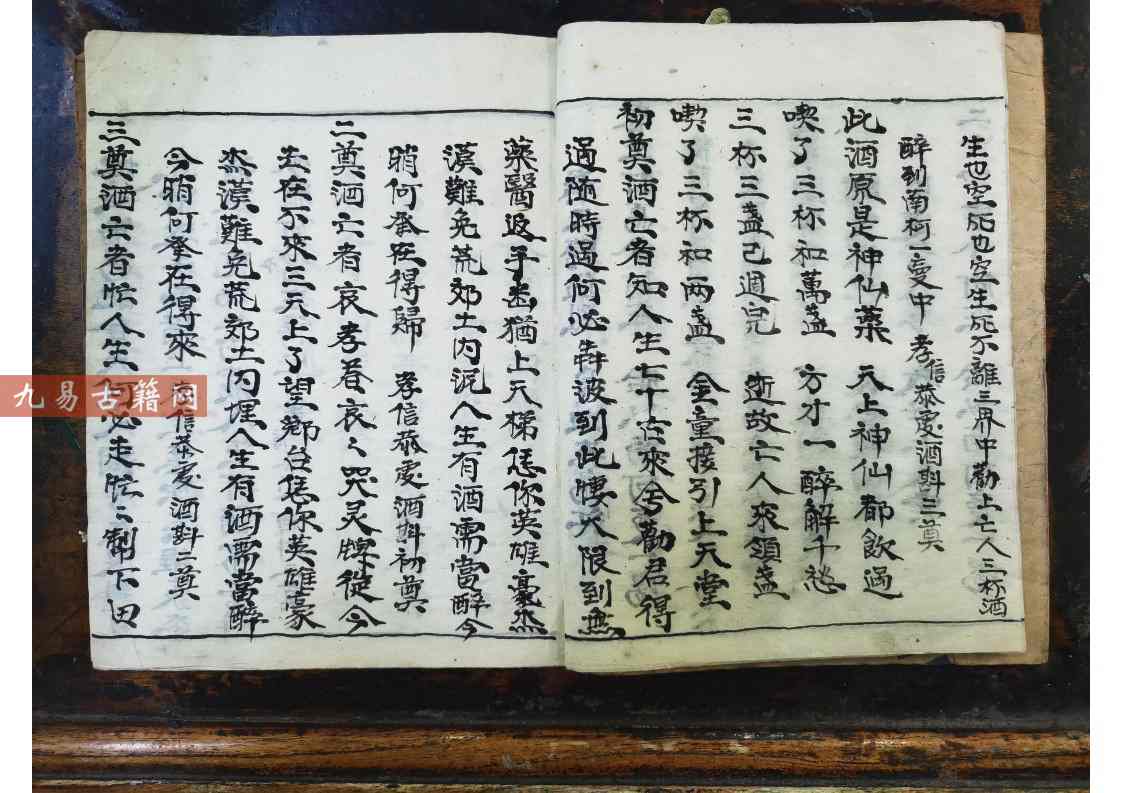 生也空死也空生死不離三界中勸上亡人三杯酒
醉到南柯一夢中 孝信恭處酒斟三奠
此酒原是神仙藥 天上神仙都飲過
喫了三杯和萬盞 方才一醉解千愁
三杯三盞已週完 逝故亡人來領盞
喫了三杯和兩盞 金童接引上天堂
初奠酒亡者知人生七十古來兮勸君得
過隨時過何必奔波到此悽大限到無
藥醫返手甚猶上天梯恁你英雄毫杰
漢難免荒郊土內泥人生有酒需當醉今
晌何登在得歸 孝信恭處酒斟初奠
二奠酒亡者哀孝眷哀哀哭灵牌徒今
去在不來三天上了望鄉台恁你英雄豪
杰漢難免荒郊土內埋人生有酒需當醉
今晌何登在得來 孝信恭處酒斟二奠
三奠酒亡者忙人生何必走忙忙制下田
九易古籍网